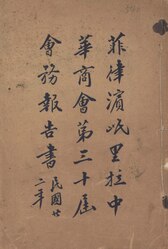 菲律濱岷里拉中
華商會第三十屆
會務報告書民國廿
二年